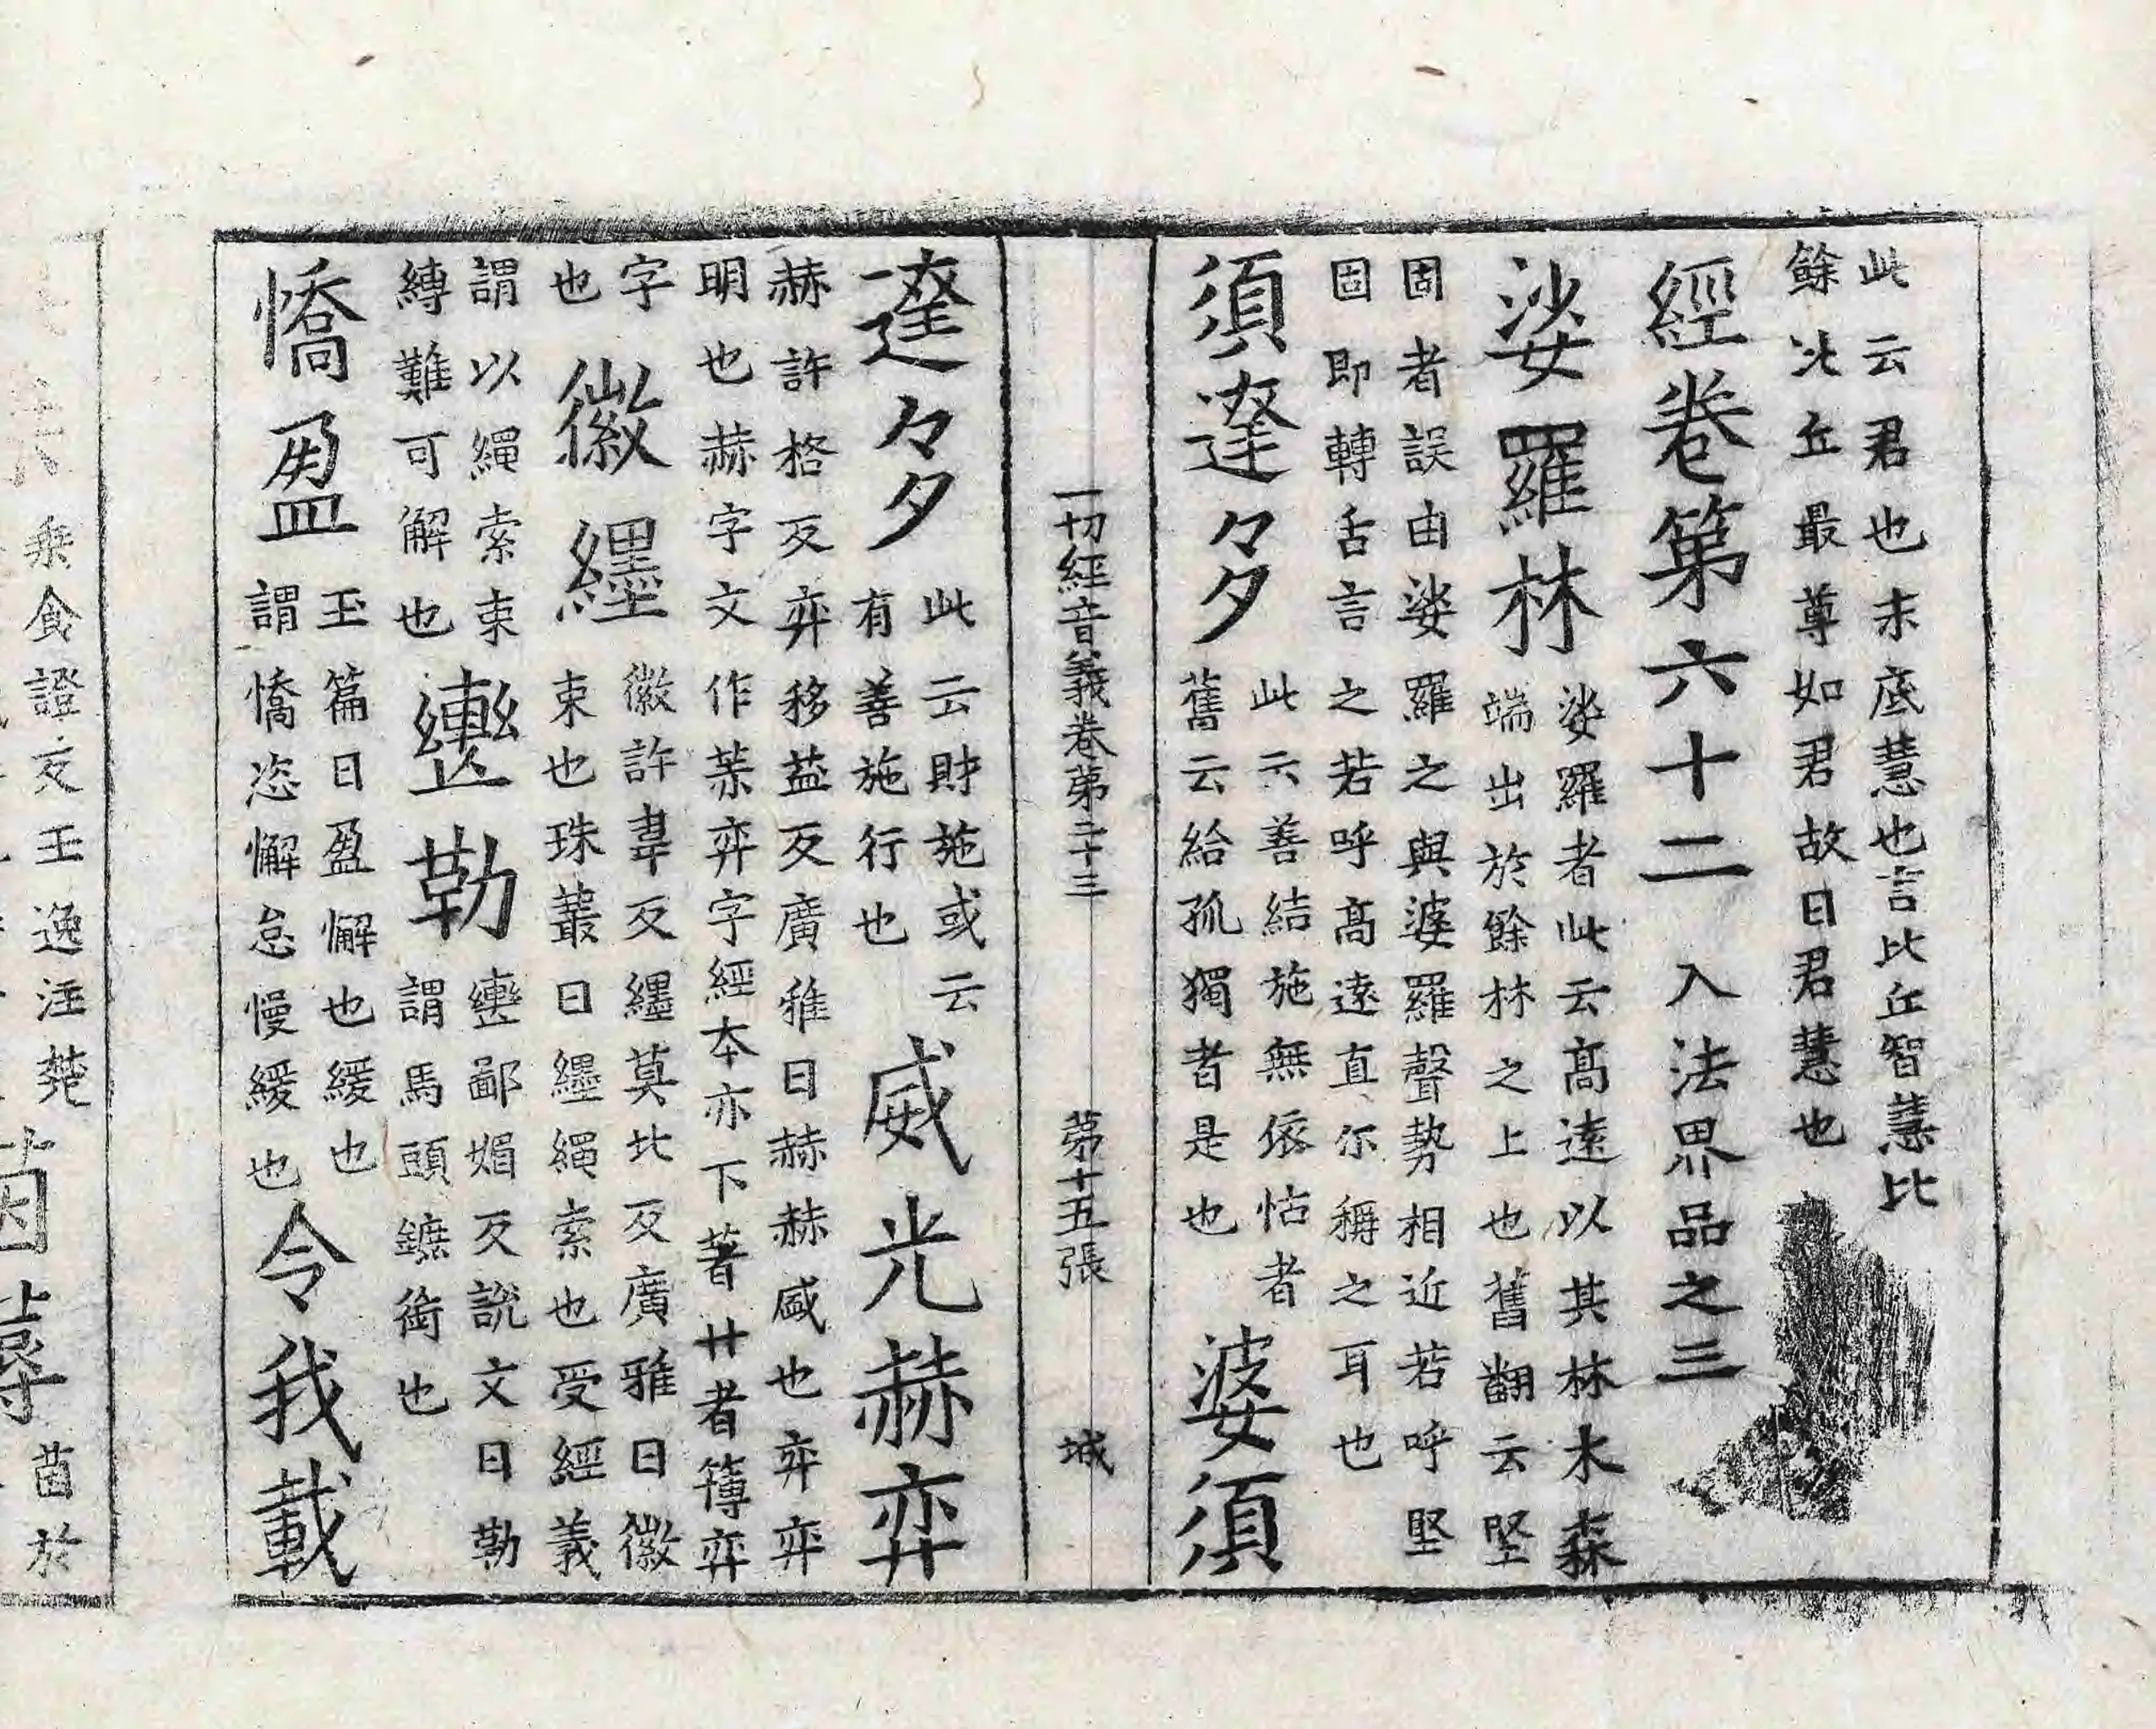 此云君也末底慧也言比丘智慧比
餘比丘最尊如君故曰君慧也
經卷第六十二　入法界品之三
娑羅林
娑羅者此云高遠以其林木森
端出於餘林之上也舊翻云堅
固者誤由娑羅之與婆羅聲勢相近若呼堅
固即轉舌言之若呼高遠直尓稱之耳也
須達々多
此云善結施無依怙者
舊云給孤獨者是也
婆須
一切經音義卷第二十三　第十五張　城
達々多
此云財施或云
有善施行也
威光赫弈
赫許格反弈移益反廣雅曰赫赫盛也弈弈
明也赫字文作𤆍弈字經本亦下著廾者簿弈
字
也
徽纆
徽許韋反纆莫北反廣雅曰徽
束也珠叢曰纆繩索也受經義
謂以繩索束
縛難可解也
轡勒
轡鄙媚反說文曰勒
謂馬頭鑣銜也
憍盈
玉篇曰盈懈也緩也
謂憍恣懈怠慢緩也
令我載
乗食證反王逸注楚
茵蓐
茵於